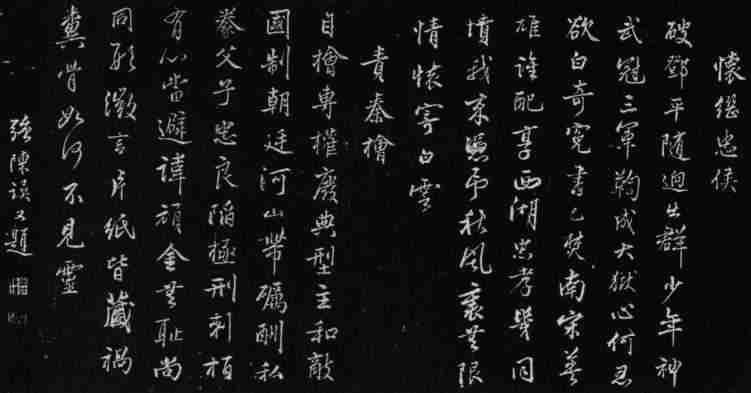 懷繼忠侯
破鄧平隨迥出群少年神
武冠三軍鞫成大獄心何忍
欲白奇冤書已焚南宋英
雄誰配享西湖忠孝幾同
墳我来憑弔秋風裏無限
情懷寄白雲
責秦檜
自檜專權廢典型主和敵
國制朝廷河山帶礪酬私
豢父子忠良陷極刑刺栢
有心當避諱頑金無恥尚
同形微言片紙皆藏禍
糞骨如何不見靈
強陳謨又題